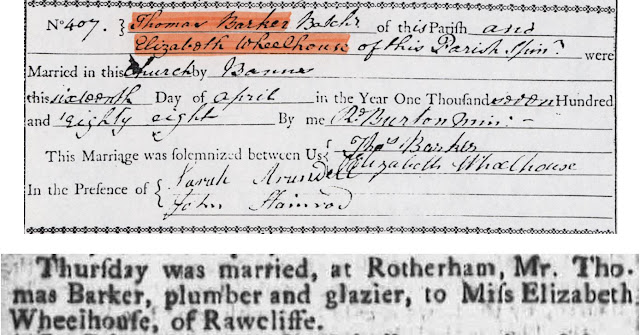 No. 407. } Thomas Barker Batchr. of this Parish and
Elizabeth Wheelhouse of this Parish Spinr. were
Married in this Church by Banns
this sixteenth Day of April in the Year One Thousand seven Hundred
and Eighty eight By me Rd. Burton Minr.
This Marriage was solemnized between Us { Thos. Barker
Elizabeth Wheelhouse
In the Presence of { Sarah Arundell
John
Thurſday was married, at Rotherham, Mr. Tho-
mas Barker, plumber and glazier, to Miſs Elizabeth
Wheelhouſe, of Rawcliffe.